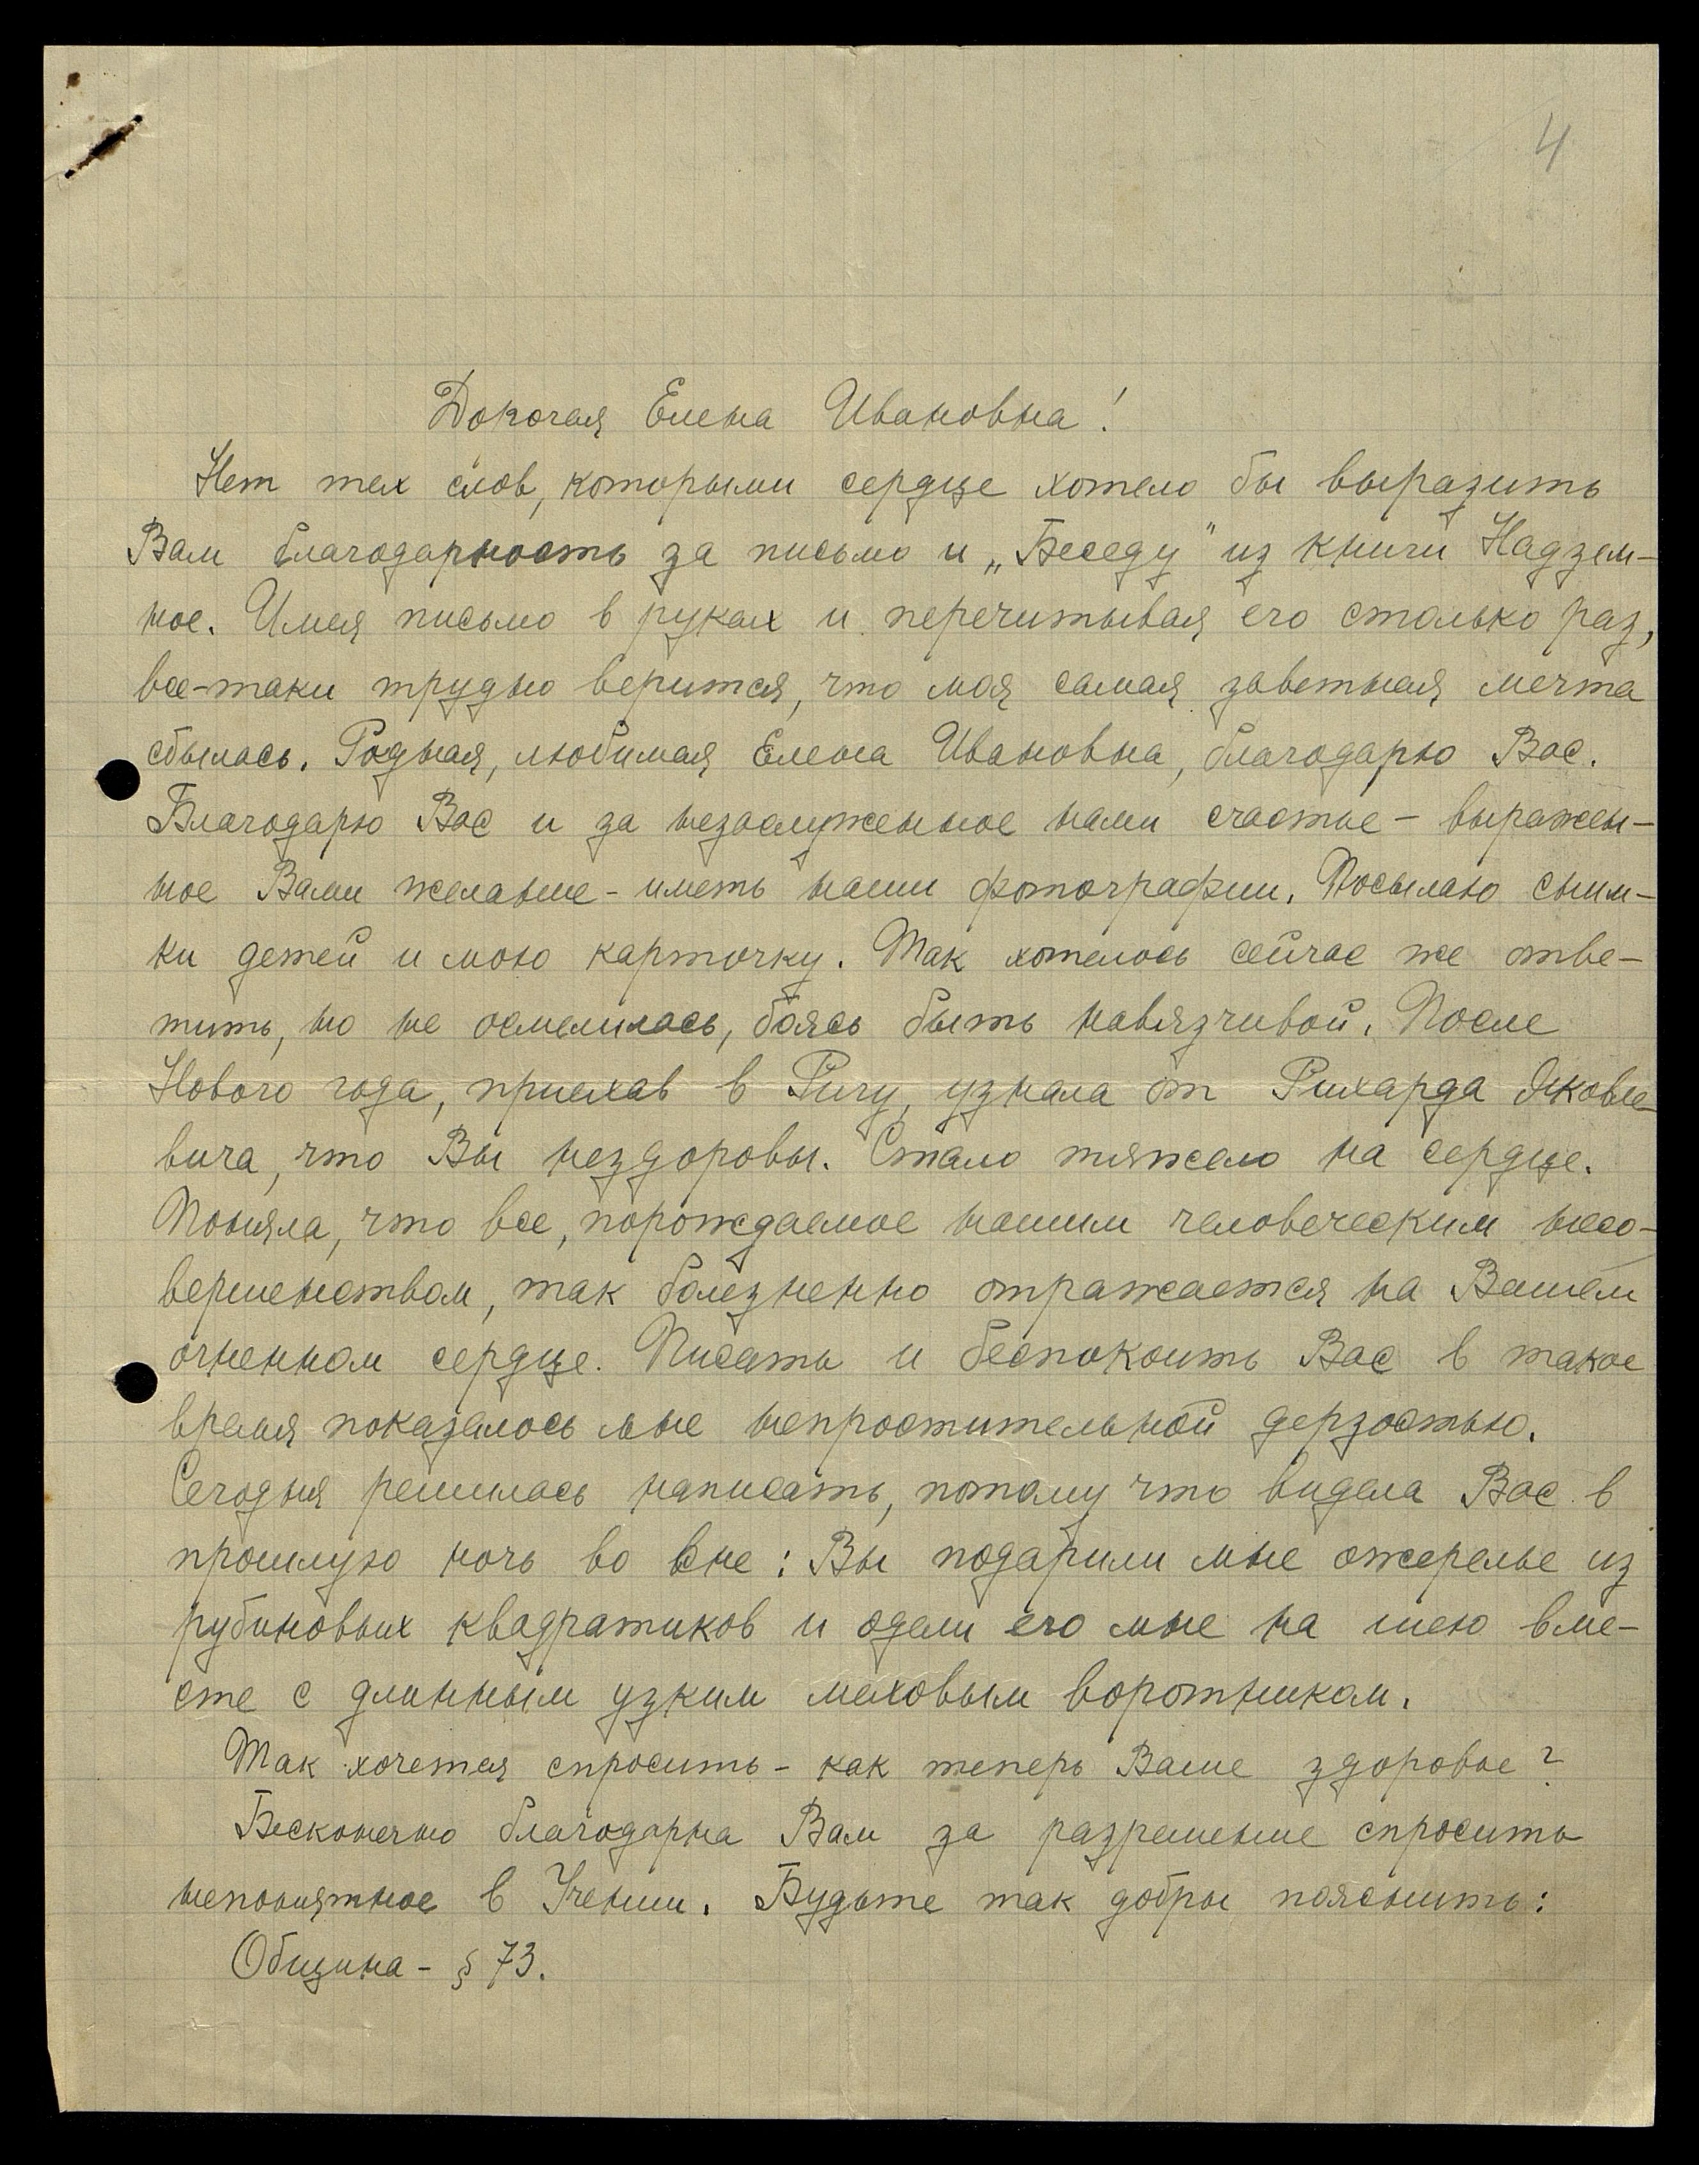 4
Дорогая Елена Ивановна!
Нет тех слов, которыми сердце хотело бы выразить
Вам благодарность за письмо и „Беседу" из книги Надзем-
ное. Имея письмо в руках и перечитывая его столько раз,
все-таки трудно верится, что моя самая заветная мечта
сбылась. Родная, любимая Елена Ивановна, благодарю Вас.
Благодарю Вас и за незаслуженное нами счастье - выражен-
ное Вами желание - иметь наши фотографии. Посылаю сним-
ки детей и мою карточку. Так хотелось сейчас же отве-
тить, но не осмелилась, боясь быть навязчивой. После
Нового года, приехав в Ригу, узнала от Рихарда Яковле-
вича, что Вы нездоровы. Стало тяжело на сердце.
Поняла, что все, порождаемое нашим человеческим несо-
вершенством, так болезненно отражается на Вашем
огненном сердце. Писать и беспокоить Вас в такое
время показалось мне непростительной дерзостью.
Сегодня решилась написать, потому что видела Вас в
прошлую ночь во сне: Вы подарили мне ожерелье из
рубиновых квадратиков и одели его мне на шею вме-
сте с длинным узким меховым воротником.
Так хочется спросить - как теперь Ваше здоровье?
Бесконечно благодарна Вам за разрешение спросить
непонятное в Учении. Будьте так добры пояснить:
Община - § 73.